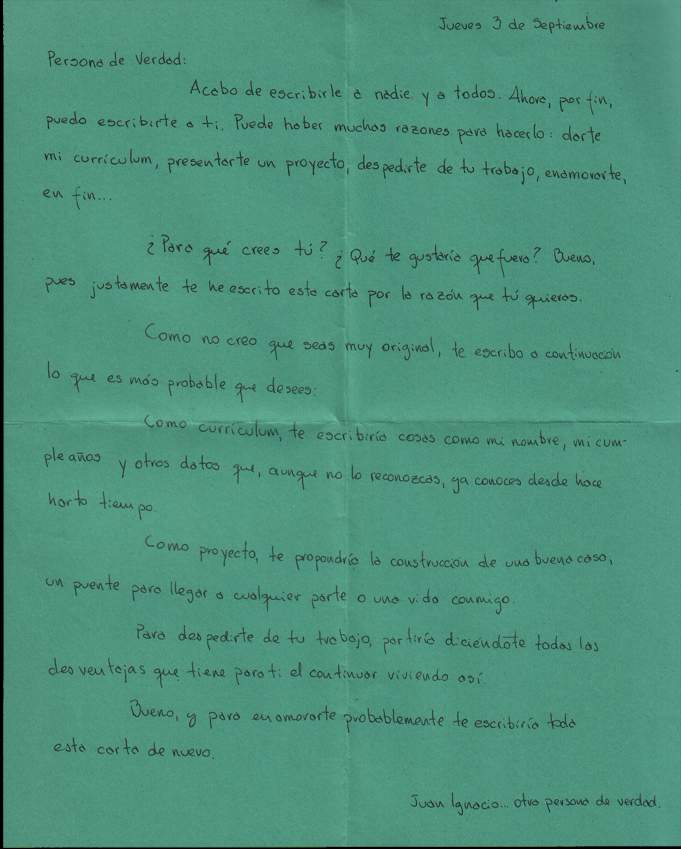 Jueves 3 de Septiembre
Persona de Verdad:
Acabo de escribirle a nadie y a todos. Ahora, por fin,
puedo escribirte a ti. Puede haber muchas razones para hacerlo: darte
mi currículum, presentarte un proyecto, despedirte de tu trabajo, enamorarte,
en fin...
¿Para qué crees tú? ¿Qué te gustaría que fuera? Bueno,
pues justamente te he escrito esta carta por la razón que tú quieras.
Como no creo que seas muy original, te escribo a continuación
lo que es más probable que desees:
Como currículum, te escribiría cosas como mi nombre, mi cum-
pleaños y otros datos que, aunque no lo reconozcas, ya conoces desde hace
harto tiempo.
Como proyecto, te propondría la construcción de una buena casa,
un puente para llegar a cualquier parte o una vida conmigo.
Para despedirte de tu trabajo, partiría diciéndote todas las
desventajas que tiene para ti el continuar viviendo así.
Bueno, y para enamorarte probablemente te escribiría toda
esta carta de nuevo.
Juan Ignacio... otra persona de verdad.